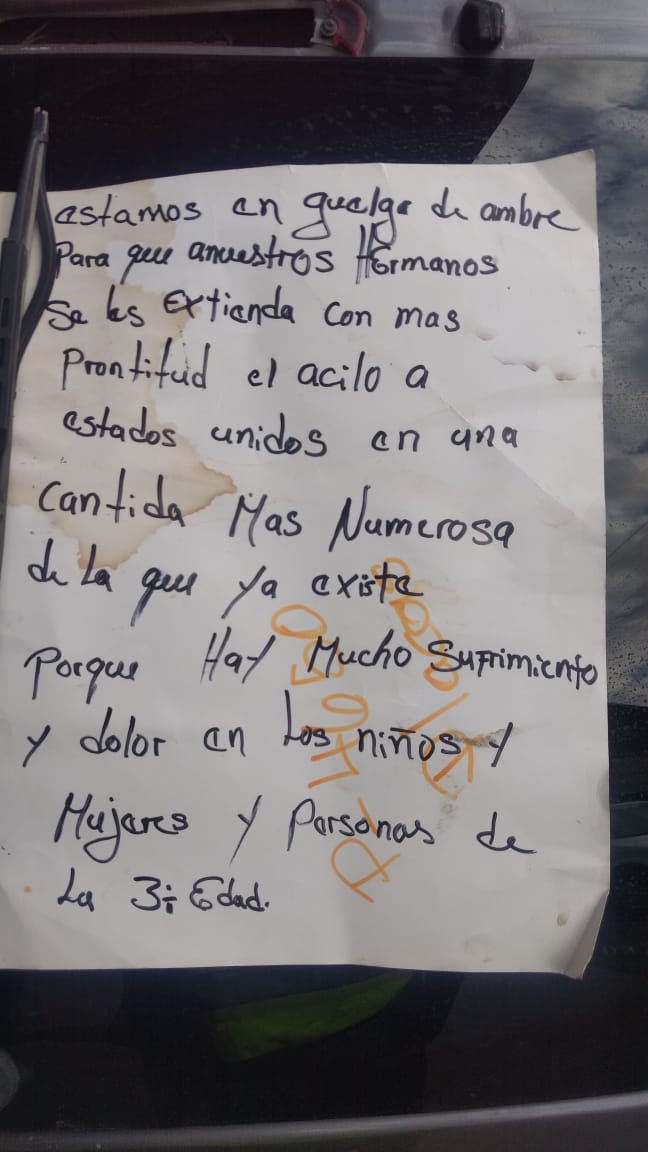 estamos en guelga de ambre
Para que anuestros Hermanos
Se les Extienda con mas
Prontitud el acilo a
estados unidos en una
Cantida Mas Numerosa
de La que ya existe
Porque Hay Mucho Sufrimiento
y dolor en Los niños y
Mujeres y Personas de
La 3ᵢ Edad.